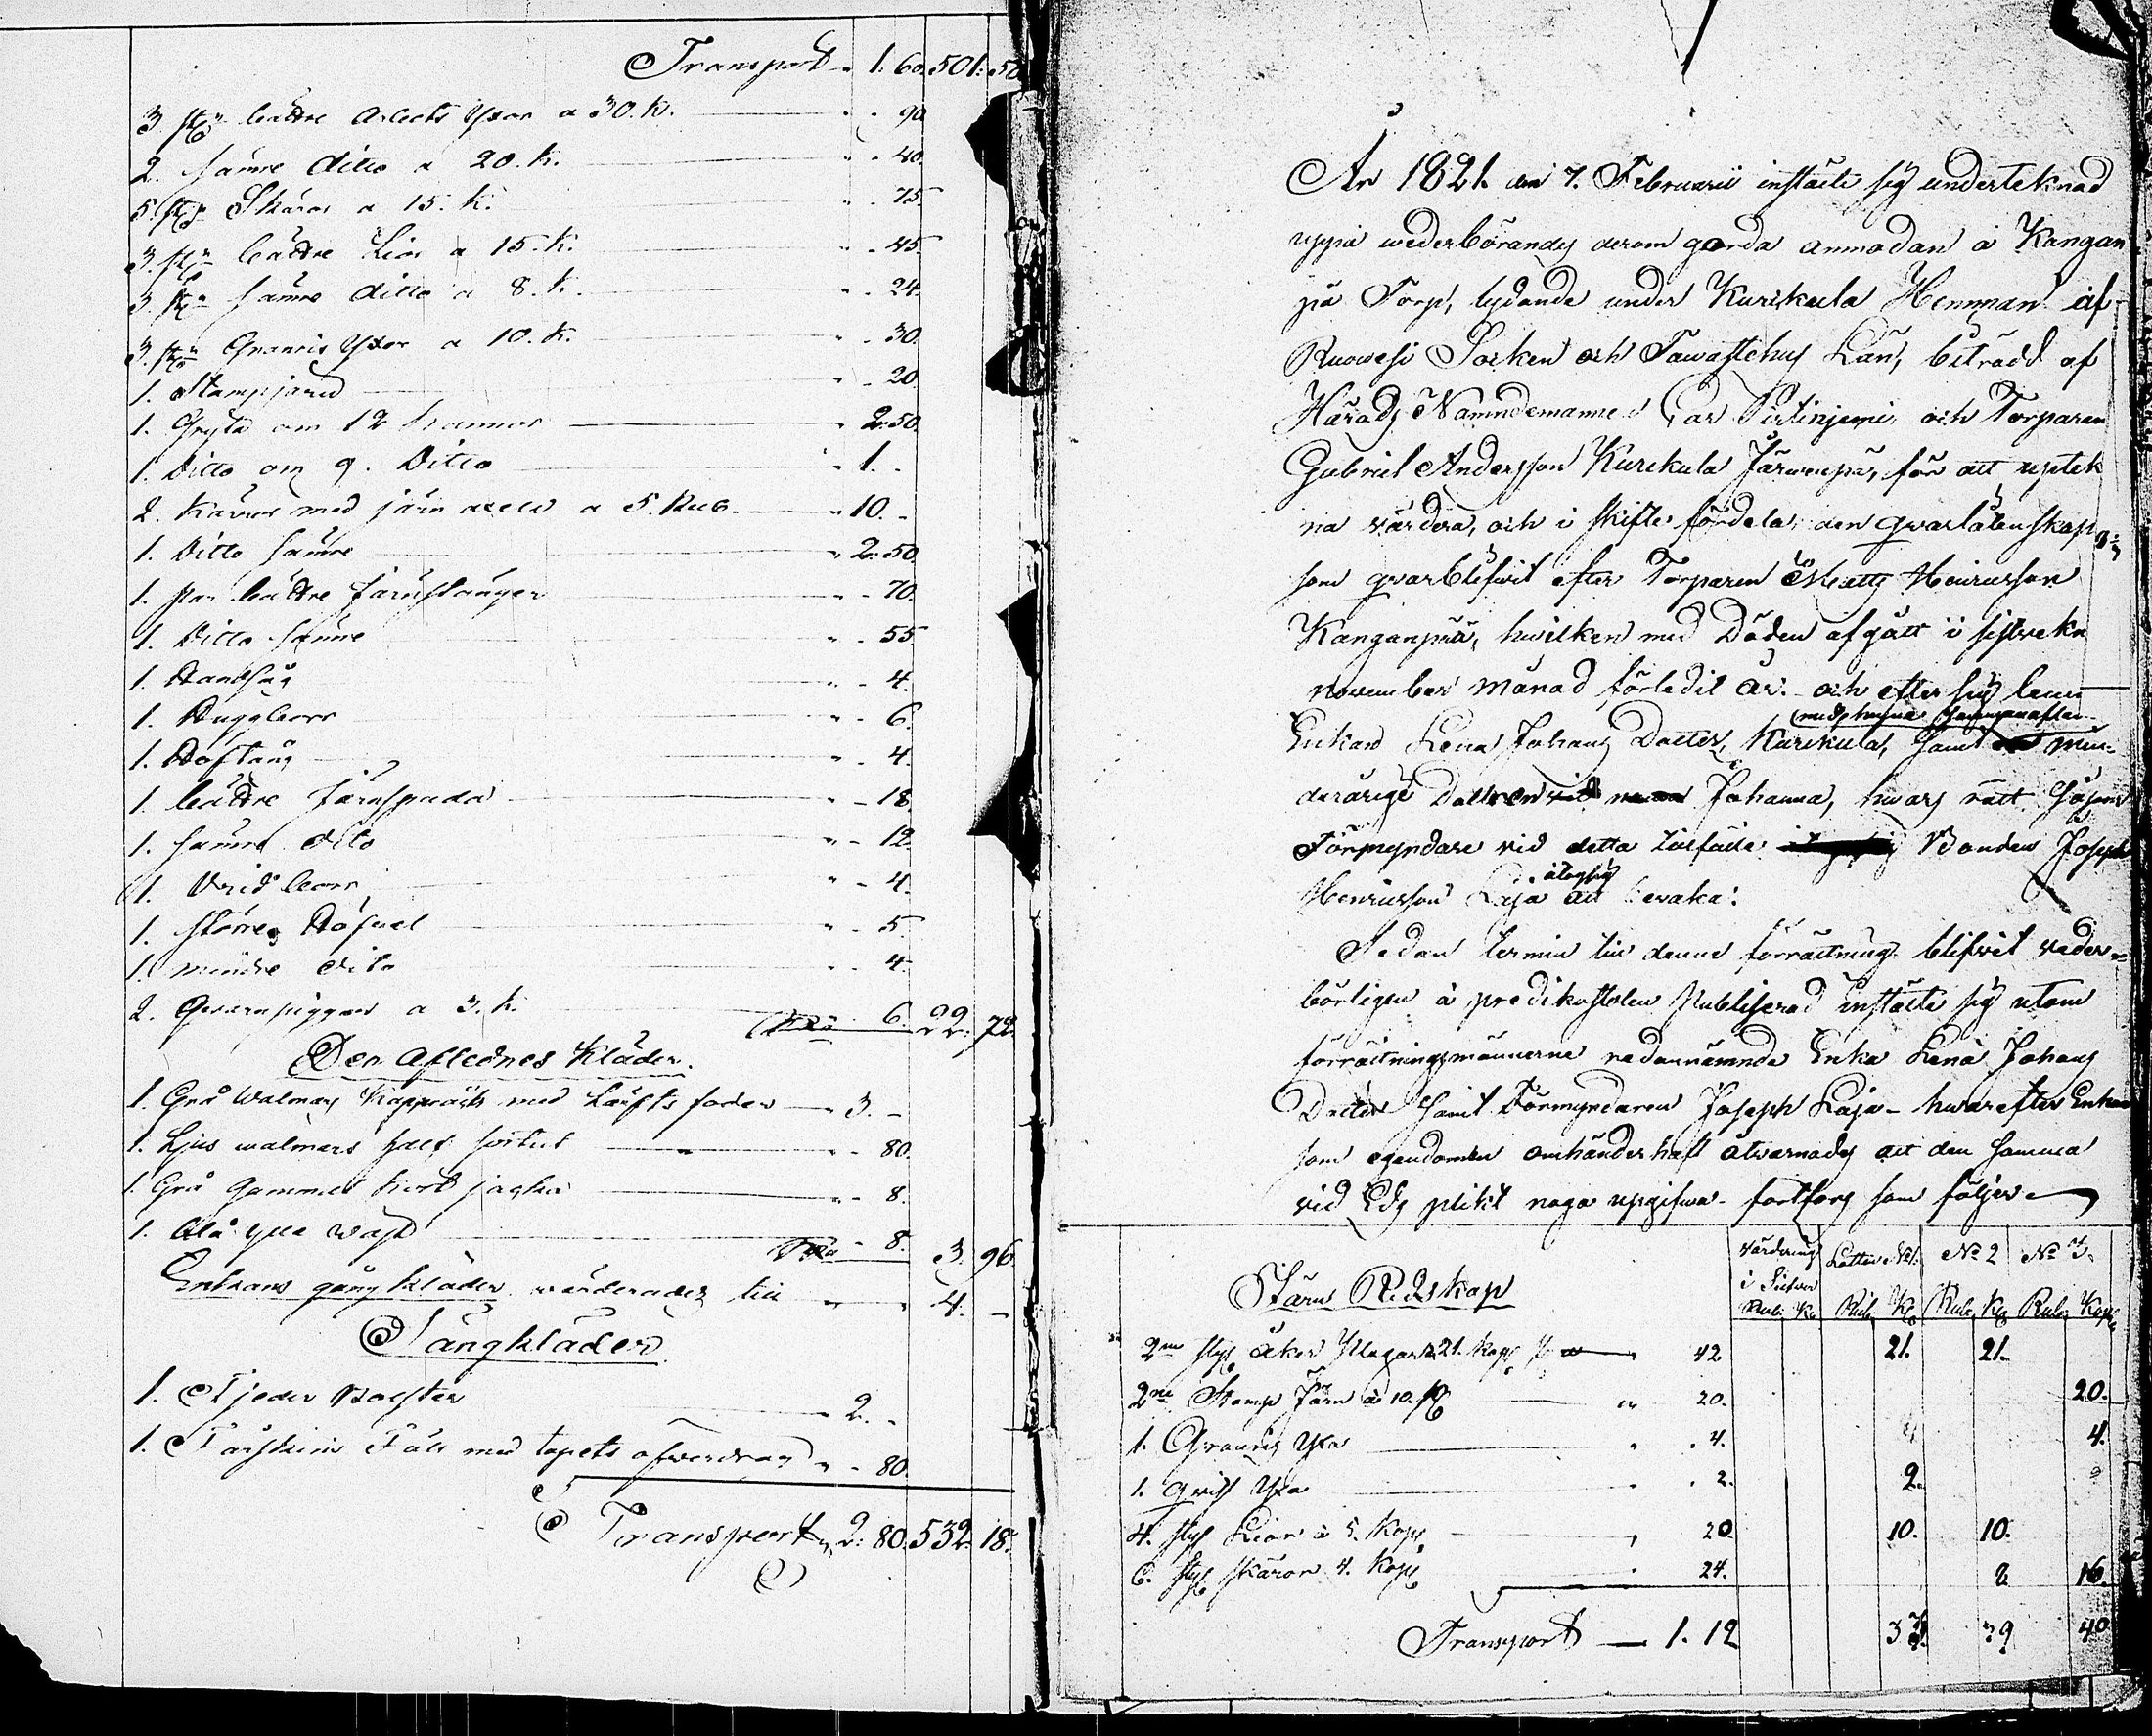 Transport " 1. 60. 501. 50
3 st. bättre arbets Yxor a 30. k. " - 90
2. sämre ditto a 20. k. " - 40.
5. st. Skäror a 15. k. " - 75.
3. st. bättre Liar a 15. k. " - 45.
3. st. sämre ditto a 8. k. " - 24.
3. st. Granris Yxor a 10. k. " - 30.
1. Stampjärn " - 20.
1. Gryta om 12 kannor " 2. 50.
1. Ditto om 9. Ditto " 1. -
2. Kärror med järn axlar a 5. Rub. " 10. -
1. Ditto sämre " 2. 50.
1. par bättre järnstänger " - 70.
1. Ditto sämre " - 55
1. Handsåg " - 4.
1. Huggborr " - 6.
1. Hoftång " - 4.
1. bättre järnspada " - 18.
1. sämre dito " - 12
1. Vridborr " - 4.
1. större Höfvel " - 5.
1. mindre dito " - 4.
2. Qvarnpiggar a 3. k. 6. 22. 72.
Den Aflednes Kläder.
1. Grå Walmars Kappråck med Lärfts foder " 3. -
1. Ljus walmars half sortut " - 80.
1. Grå Gammal kort jacka " - 8.
1. blå ylle Wäst " - 8. 3. 96.
Enkans gångkläder värderades till " " 4. -
Sängkläder
1. Fjeder Bolster " 2. -
1. Fårskins Fäll med tapets öfverdrag " - 80.
Transport " 2. 80. 532. 18.
År 1821. den 7. Februarii instälte sig undertecknad
uppå wederbörandes derom gjorda anmodan å Kangan
pä Torp, lydande under Kurikula Hemman af
Ruowesi Socken och Tawastehus Län, biträdd af
Härads Nämndemannen Pirtinjemi och Torparen
Gabriel Andersson Kurikula Järwenpä, för att uptek
na värdera, och i skifte fördela, den qvarlåtenskap
som qvarblifwit efter Torparen Matts Henricsson
Kanganpää, hwilken med Döden afgått i sistvekne
november månad förledit år. och efter sig lemn
med henne sammanaflad
Enkan Lena Johans Dotter, Kurikula, samt min-
deråriga Dottren Johanna, hwars rätt såsom
Förmyndare vid detta tillfälle Bonden Joseph
åtog sig
Henricsson Laja att bevaka:
Sedan termin till denne förrättning blifvit veder-
börligen å predikostolen Publiserad instälte sig utom
förrättningsmännerne nedannämnde Enka Lena Johans
Dotter samt Förmyndaren Joseph Laja - hwarefter Enkan
som egendomen omhänderhaft åtvarnades att den samma
vid Eds plikt noga uppgifwa - fortfors som följer
Värdering i Silfver Rub. K. Lotten N. 1. Rub. K. No 2 Rub. K. No 3. Rub. Kop.
Järn Redskap
2ne st. åker Plogar a 21. kop. " 42 21. 21.
2ne Stamp Järn à 10. " 20. 20.
1. Granris Yxa " . 4. 4.
1. Yxa " . 2. 2.
4. st. Liar à 5. kop. " 20 10. 10.
6. st. skäror 4. kop. " 24. 8 16.
Transport 1. 12 33. 39 40